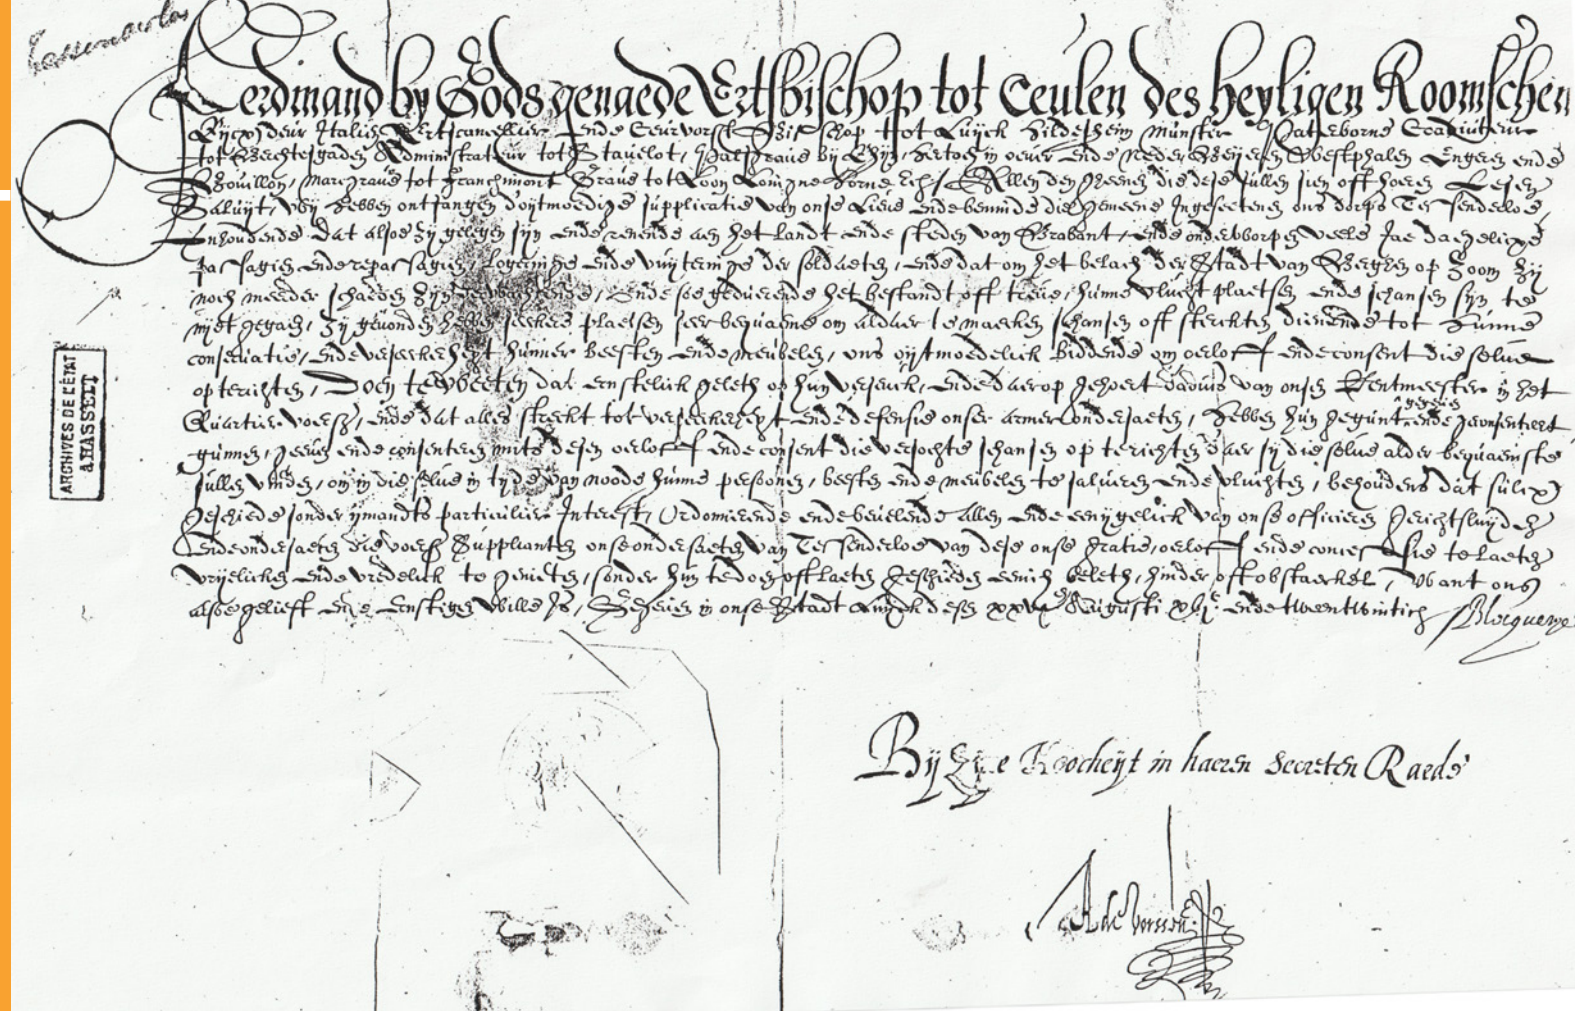 Ferdinand by Gods genaede Ertsbischop tot Ceulen des heyligen Roomschen
Rijcx deur Italien Eertscancellier ende Ceurvorst Bisschop tot Luyck Hildesheim Munster Paterborne Coadiuteur
tot Berchtesgaden Administrateur tot Stavelot, Palsgrave by Rhijn, Hertoch in over ende neder Beyeren Westphalen Engeren ende
Bouillon, Marcgrave tot Franchimont Grave tot Loon Loingne Horne etc. Allen den gheenen die dese sullen sien oft hooren Lesen
Saluyt, Wy hebben ontfangen d'oytmoedige supplicatie van onse Lieve ende beminde die gemeene Ingesectenen ons dorps Tessenderloe,
Inhoudende dat alsoe zy gelegen syn ende renende aen het Landt ende steden van Brabant, ende onderworpen veele Jae dagelicxe
passagien ende repassagien, Logeringe ende vuyteringe der soldaeten, ende dat om het belach der Stadt van Bergen op Zoom zy
noch meerder schaeden zyn verwachtende, Ende soe geduerende het bestandt oft treve, hunne vlucht plaetsen ende schansen syn te
nijet gegaen, zy gevonden hebben seekere plaetsen seer bequaeme om aldaer te maecken schansen oft sterckten dienende tot hunne
conservatie, ende verseekerheyt hunner beesten ende meubelen, ons oytmoedelick biddende om oerloff ende consent die selve
op terichten, Doen te weeten dat ernstelick geleth op hun versueck, ende daerop gehoert d'advis van onsen Rentmeester in het
gegeven
Quartier voersz, ende dat alles streckt tot verseekerheyt ende defensie onser armer ondersaeten, hebben hun gegunt ende geconsenteert
gunnen, geeven ende consenteren mits desen oerloff ende consent die versochte schansen op terichten daer sy die selve alder bequaemste
sullen vinden, om in die selve in tyde van noode hunne persoonen, beesten ende meubelen te salveren ende vluchten, behoudens dat sulcx
geschiede sonder ymandts particulier Interest, Ordonnerende ende bevelende allen ende eenygelick van onse officieren gerichtsluyden
ende ondersaeten die voersz Supplianten onse ondersaeten van Tessenderloe van dese onse gratie, oerloff ende concessie te laeten
vryelicken ende vredelick te genieten, sonder hun te doen oft laeten geschieden eenich beleth, hinder oft obstaeckel, Want ons
alsoe gelieft ende ernstigen wille Is, Gegeven in onse Stadt Luyck desen Augusti ende tweentwintich
Bij Zyne Hoocheijt in haeren Secreten Raede
ARCHIVES DE L'ÉTAT
à HASSELT